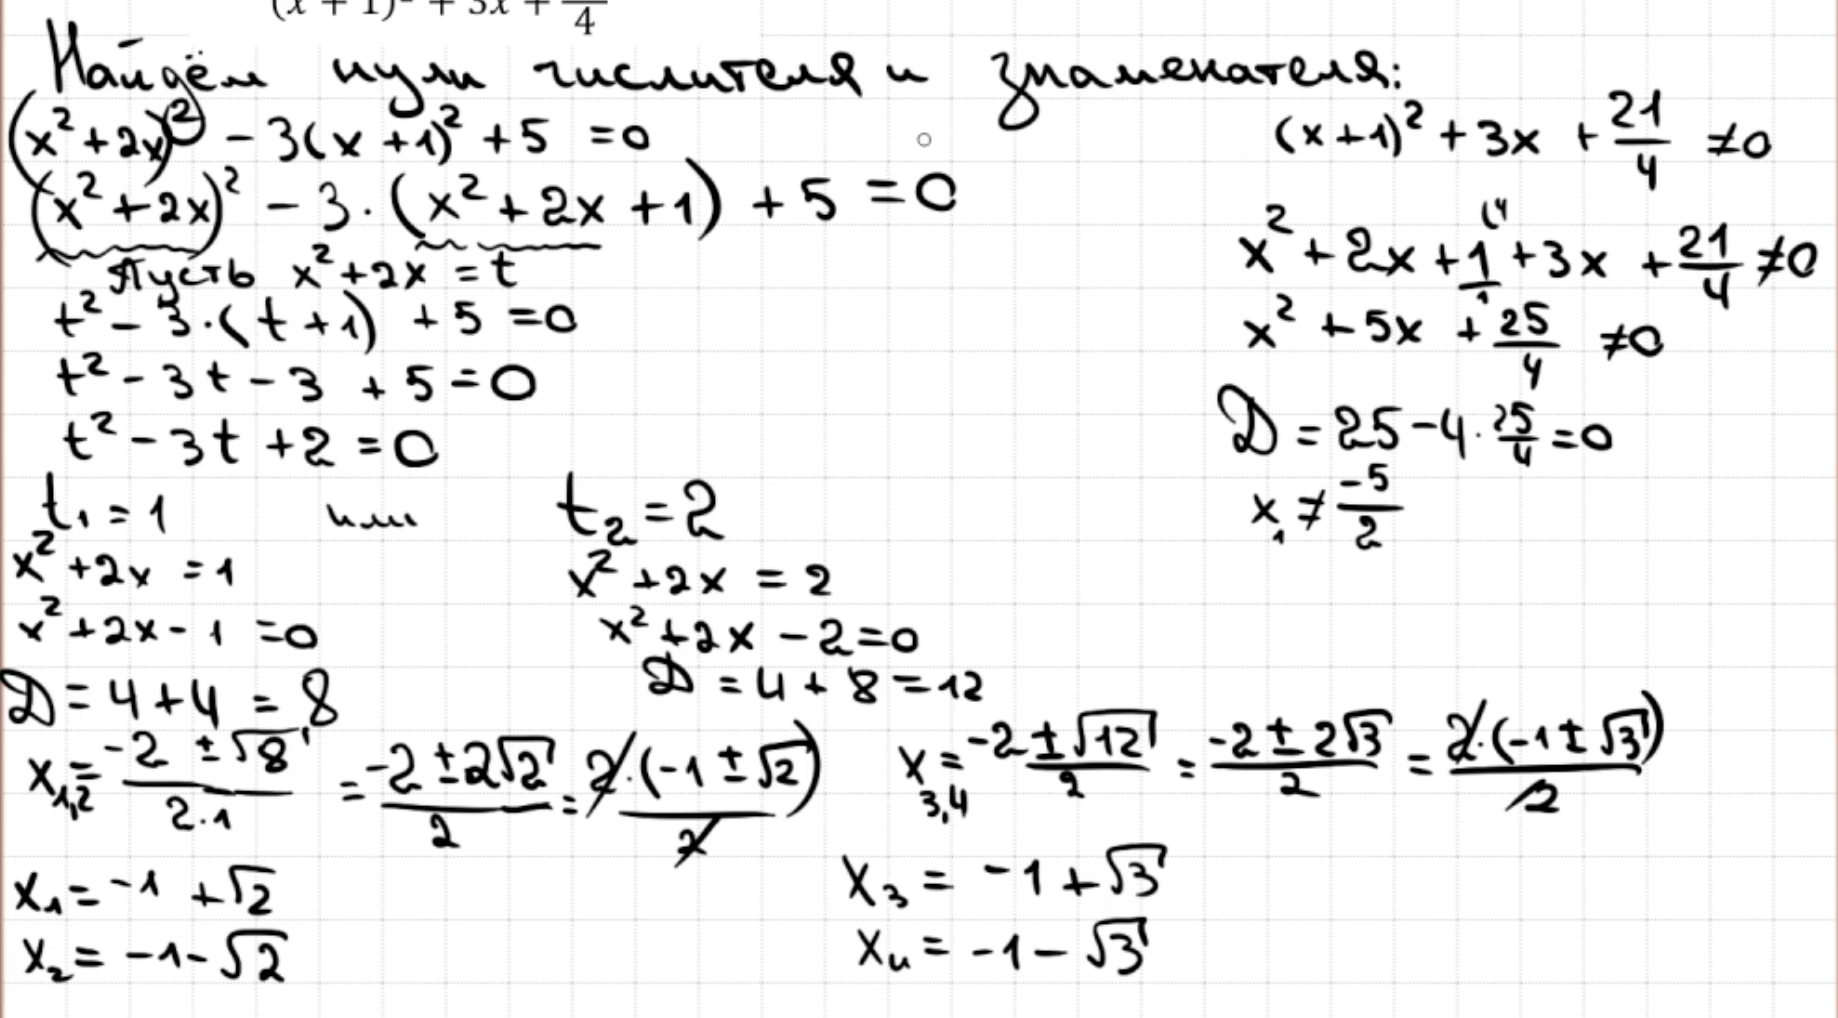 (x + 1)² + 3x + —/4
Найдём нули числителя и знаменателя:
(x²+2x)² - 3(x+1)² + 5 = 0
(x²+2x)² - 3·(x²+2x+1) + 5 = 0
Пусть x²+2x = t
t² - 3·(t+1) + 5 = 0
t² - 3t - 3 + 5 = 0
t² - 3t + 2 = 0
t₁ = 1 или t₂ = 2
x²+2x = 1
x²+2x-1 = 0
D = 4+4 = 8
x₁,₂ = (-2 ± √8)/(2·1) = (-2 ± 2√2)/2 = 2·(-1 ± √2)/2
x₁ = -1 + √2
x₂ = -1 - √2
x²+2x = 2
x²+2x-2 = 0
D = 4+8 = 12
x₃,₄ = (-2 ± √12)/2 = (-2 ± 2√3)/2 = 2·(-1 ± √3)/2
x₃ = -1 + √3
x₄ = -1 - √3
(x+1)² + 3x + 21/4 ≠ 0
x² + 2x + 1/1 (4 + 3x + 21/4 ≠ 0
x² + 5x + 25/4 ≠ 0
D = 25 - 4·25/4 = 0
x₁ ≠ -5/2